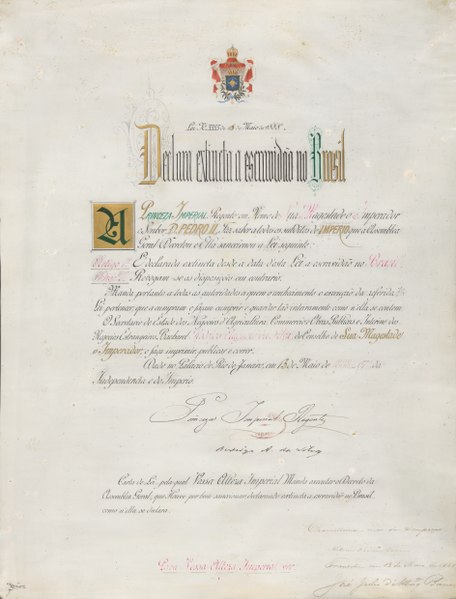 Lei N. 3353 de 13 de Maio de 1888.
Declara extincta a escravidão no Brasil
A PRINCEZA IMPERIAL Regente em Nome de Sua Magestade o Imperador
o Senhor D. PEDRO II, Faz saber a todos os subditos do IMPERIO que a Assembléa
Geral Decretou e Ella sanccionou a Lei seguinte:
Artigo 1º É declarada extincta desde a data desta Lei a escravidão no Brazil.
Artigo 2º Revogam-se as disposições em contrario.
Manda portanto a todas as autoridades a quem o conhecimento e execução da referida
Lei pertencer, que a cumpram e façam cumprir e guardar tão inteiramente como n'ella se contem.
O Secretario de Estado dos Negocios d'Agricultura, Commercio e Obras Publicas e Interino dos
Negocios Estrangeiros, Bacharel Rodrigo Augusto da Silva do Conselho de Sua Magestade
o Imperador, o faça imprimir, publicar e correr.
Dado no Palacio do Rio de Janeiro, em 13 de Maio de 1888, 67º da
Independencia e do Imperio.
Princeza Imperial Regente
Rodrigo A. da Silva
Carta de Lei, pela qual Vossa Alteza Imperial Manda executar o Decreto da
Assembléa Geral, que Houve por bem sanccionar declarando extincta a escravidão no Brazil
como n'ella se declara.
Para Vossa Alteza Imperial ver.
Chancellaria mór do Imperio